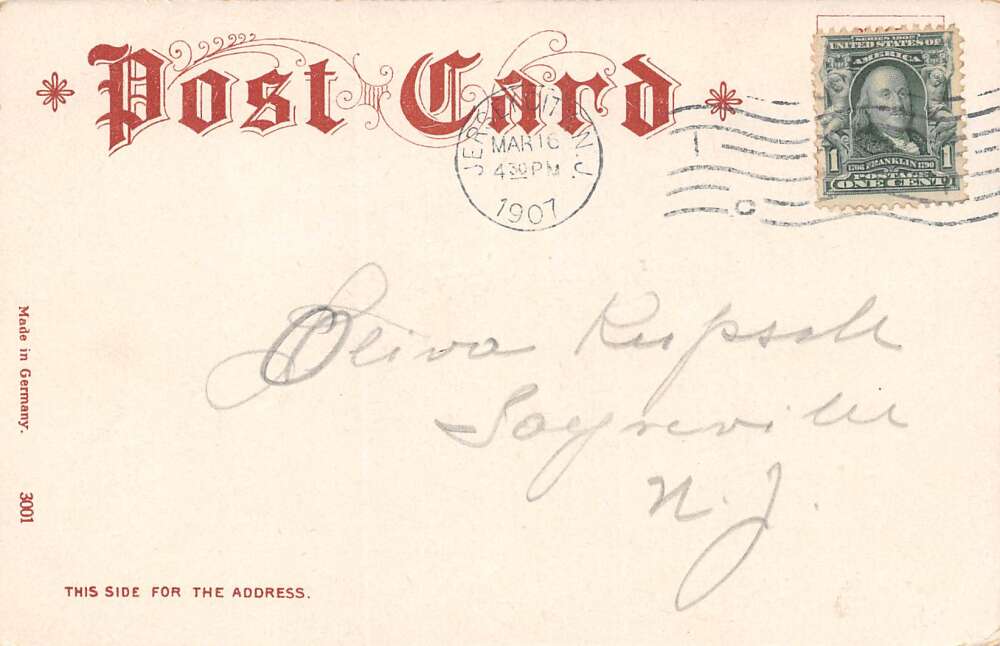 Post Card
SERIES 1902
UNITED STATES OF
AMERICA
1706 FRANKLIN 1790
1 POSTAGE 1
ONE CENT
JERSEY CITY N.J.
MAR 16
4 30 PM
1907
Oliva Rupsch
Sayreville
N. J.
Made in Germany.
3001
THIS SIDE FOR THE ADDRESS.